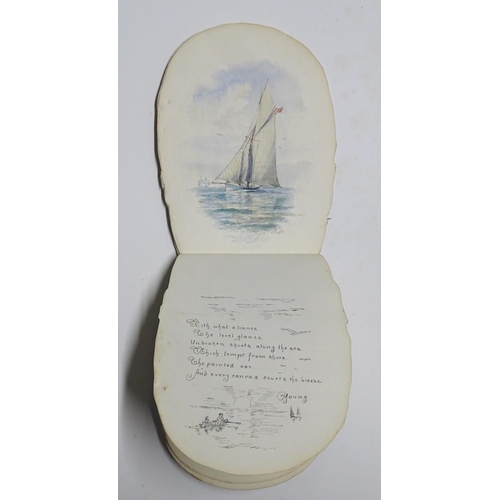 With what a trance
The level glance
Unbroken shoots along the sea
Which tempt from shore
The painted oar
And every canvas courts the breeze
Young